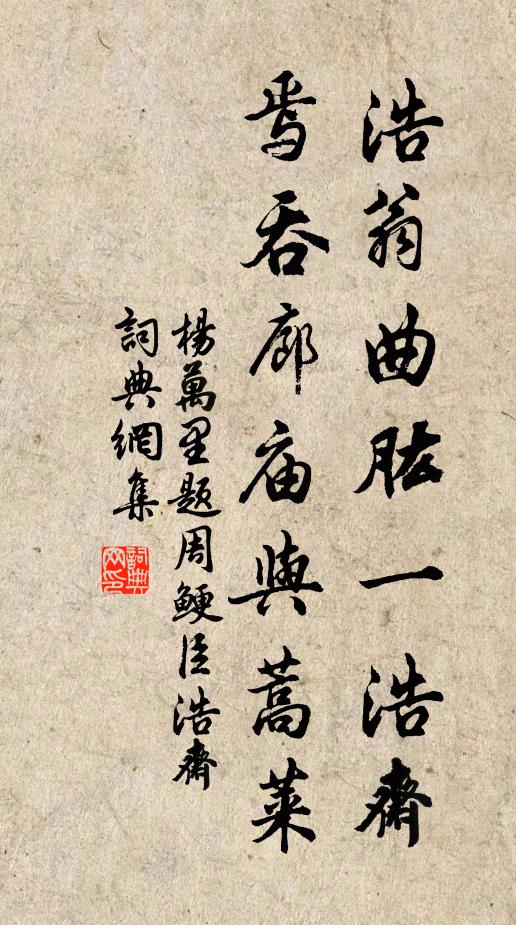 浩翁曲肱一浩齋
焉吞廊庙與蒿萊
楊萬里題周鯁臣浩齋
詞典網集
詞典网印